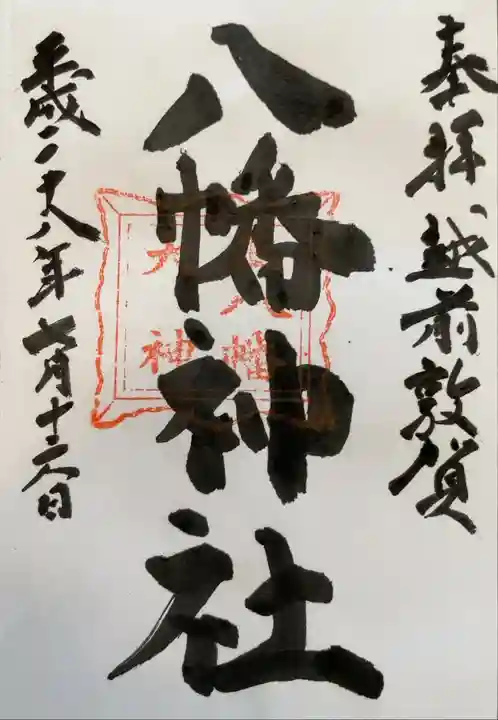 奉拝 越前敦賀
八幡神社
平成二十八年七月十三日